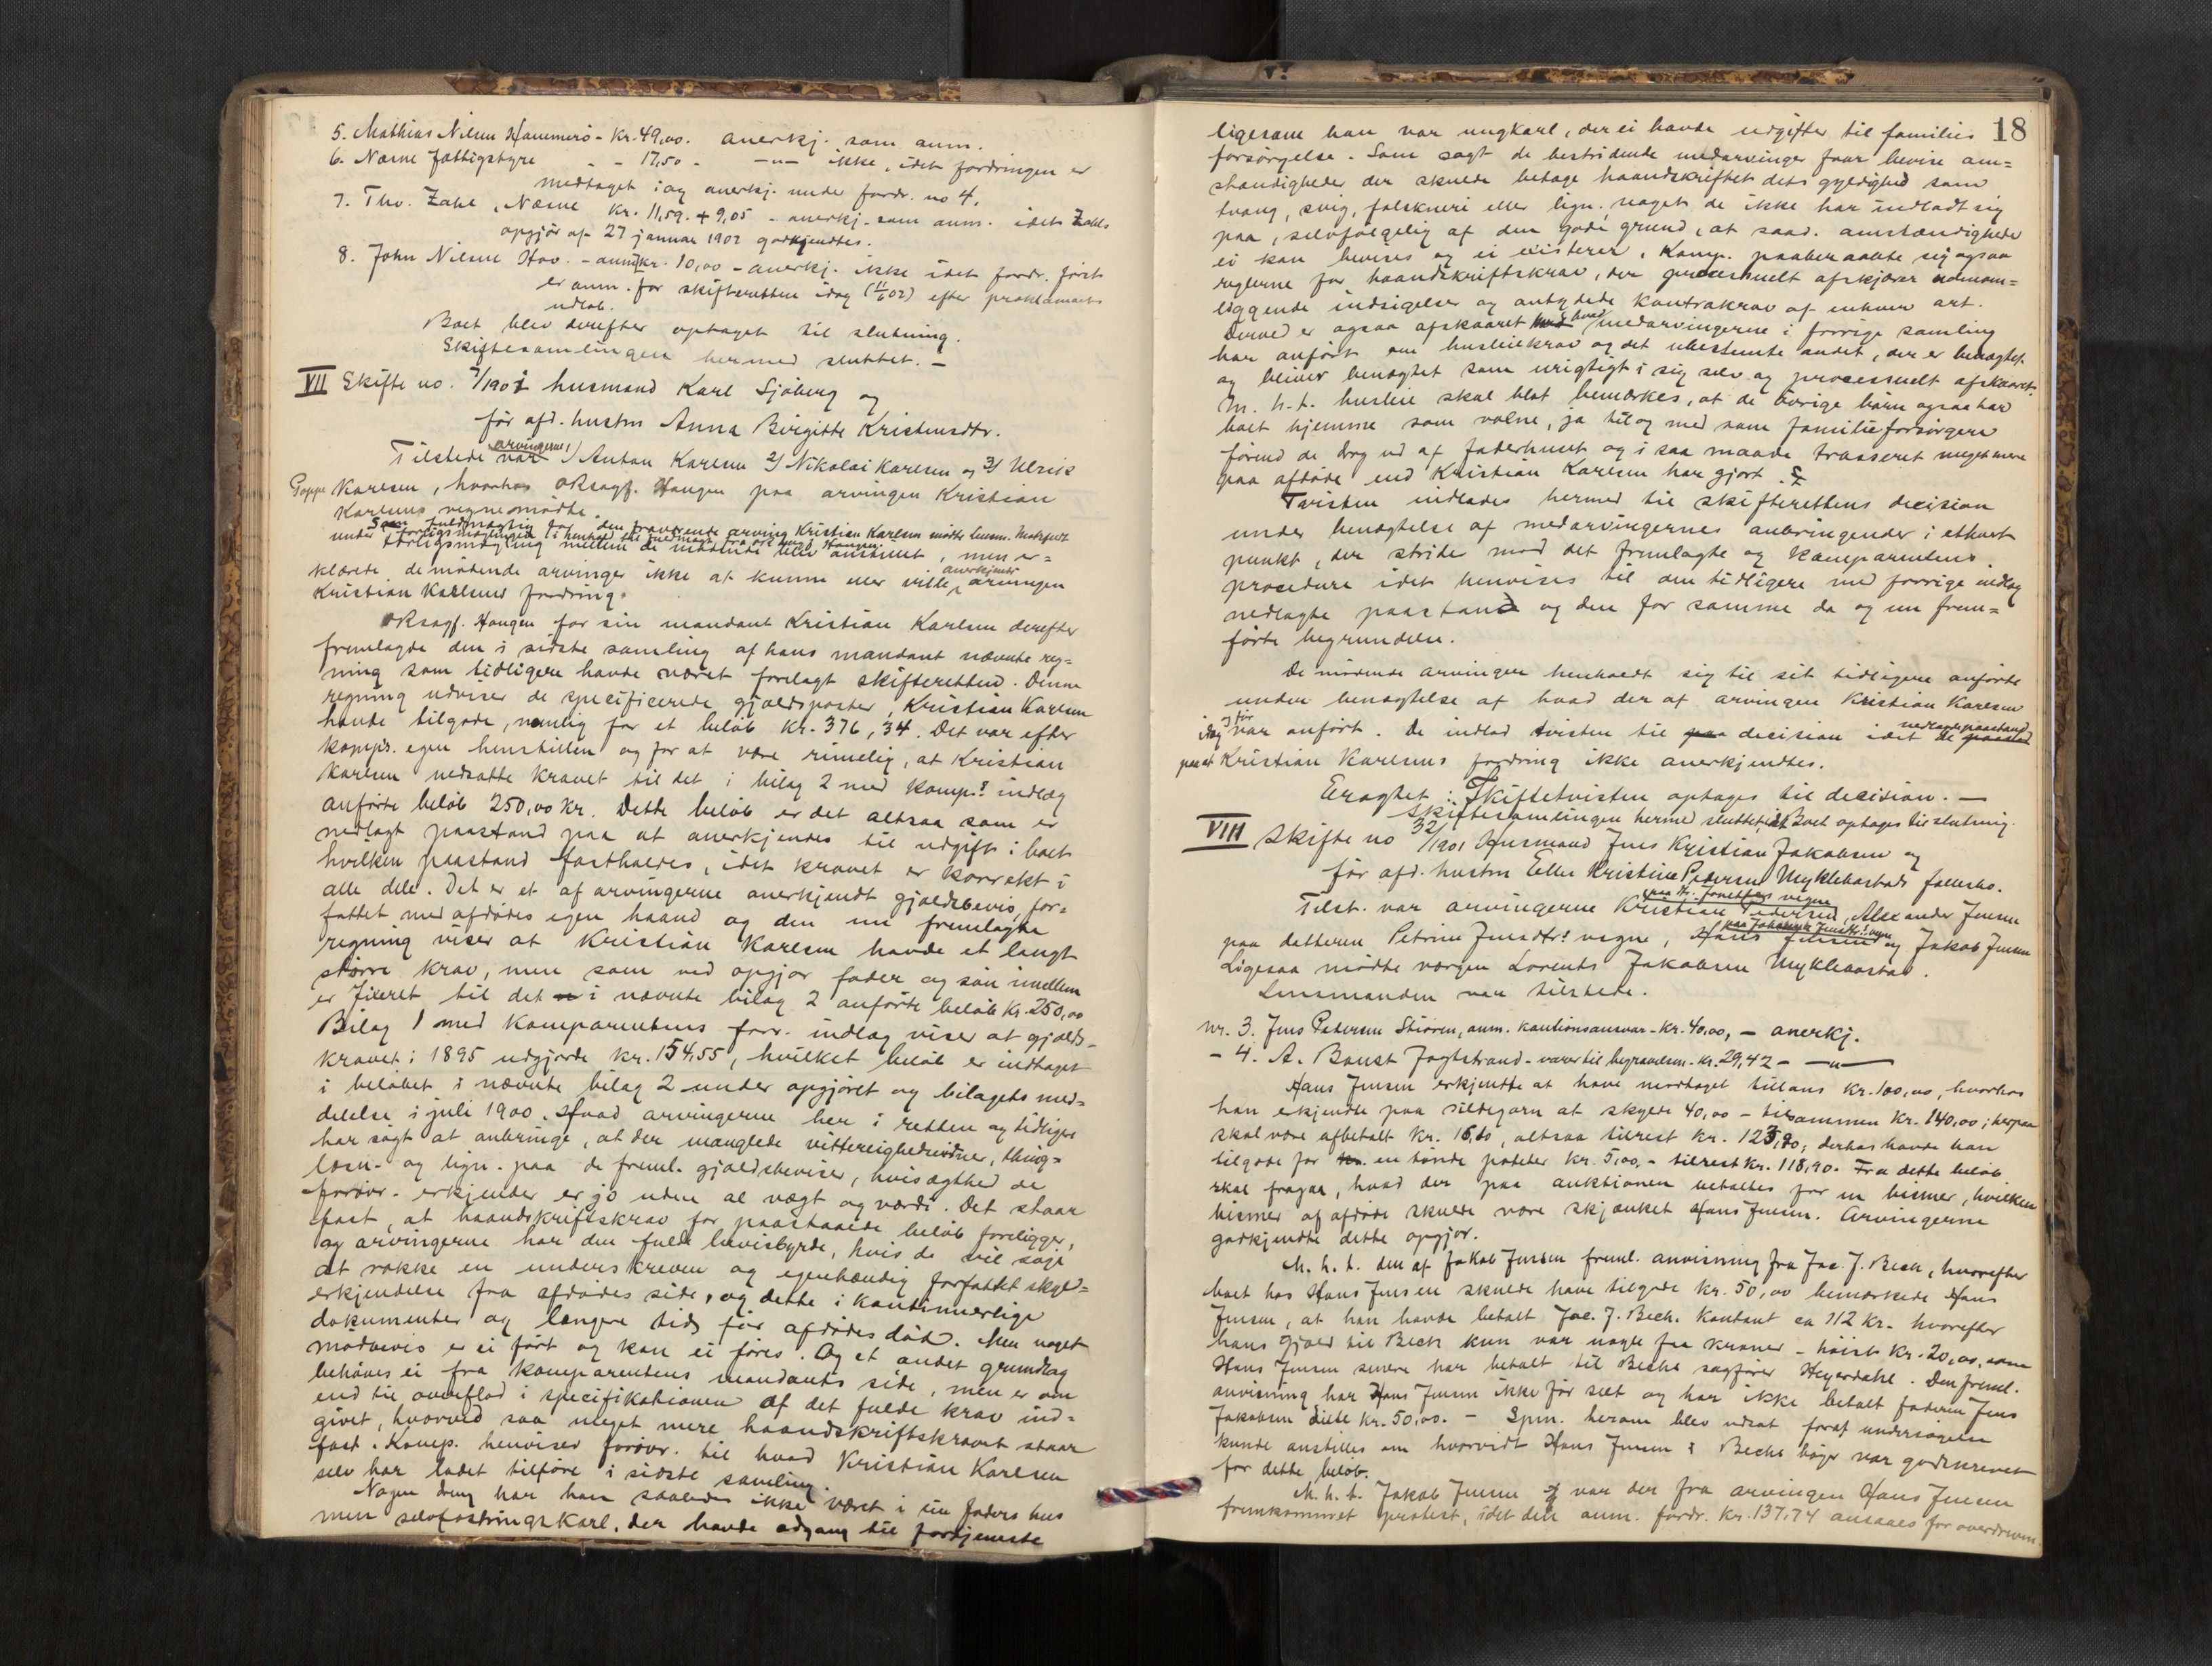 5. Mathias Nilsen Hammerö - Kr. 49,00. anerkj. som anm.
6. Næsne Fattigstyre - - 17,50 - -"- ikke, idet fordringen er
medtaget i og anerkj. under fordr. no 4.
7. Thv. Zahl, Næsne Kr. 11,59. + 9,05 - anerkj. som anm. idet Zahls
opgjör af 27 januar 1902 godkjendtes.
8. John Nilsen Hov. - anm. kr. 10,00 - anerkj. ikke idet fordr. först
er anm. for skifteretten idag (11/6 02) efter proklamaets
udlöb.
Boet blev derefter optaget til slutning.
Skiftesamlingen hermed sluttet. -
VII Skifte no. 7/1901 husmand Karl Sjöberg og
för afd. hustru Anna Birgitte Kristensdtr.
Tilstede var arvingerne 1) Anton Karlsen 2) Nikolai Karlsen og 3) Ulrik
Karlsen, hvorhos oRsagf. Haugen paa arvingen Kristian
Karlsens vegne mödte.
Som fuldmægtig for den fraværende arving Kristian Karlsen mödte lensm.
under forligsmæglingen i henhold til fuldmagt fra oRsagf. Haugen.
Forligsmægling mellem de mödende blev anstillet, men er=
klærede de mödende arvinger ikke at kunne eller ville anerkjende arvingen
Kristian Karlsens fordring.
oRsagf. Haugen for sin mandant Kristian Karlsen derefter
fremlagde den i sidste samling af hans mandant nævnte reg=
ning som tidligere havde været forelagt skifteretten. Denne
regning udviser de specificerede gjældsposter, Kristian Karlsen
havde tilgode, nemlig for et belöb kr. 376,34. Det var efter
komps. egen henstillen og for at være rimelig, at Kristian
Karlsen nedsatte kravet til det i bilag 2 med komps. indlæg
anförte belöb 250,00 Kr. Dette belöb er det altsaa som er
nedlagt paastand paa at anerkjendes til udgift i boet
hvilken paastand fastholdes, idet kravet er korrekt i
alle dele. Det er et af arvingerne anerkjendt gjældsbevis, for=
fattet med afdödes egen haand og den nu fremlagte
regning viser at Kristian Karlsen havde et langt
större krav, men som ved opgjör fader og sön imellem
er fixeret til det i nævnte bilag 2 anförte belöb Kr. 250,00
Bilag 1 med komparentens forr. indlæg viser at gjælds-
kravet i 1895 udgjorde kr. 154,55, hvilket belöb er indtaget
i belöbet i nævnte bilag 2 under opgjöret og bilagets med=
delelse i juli 1900. Hvad arvingerne her i retten og tidligere
har sögt at anbringe, at der manglede vitterlighedsvidner, thing=
læsn. og lign. paa de freml. gjældsbeviser, hvis ægthed de
forövr. erkjender er jo uden al vægt og værdi. Det staar
fast, at haandskriftskrav for paastaaede belöb foreligger,
og arvingerne har den fulde bevisbyrde, hvis de vil söge
at rokke en underskreven og egenhændig forfattet skyld=
erkjendelse fra afdödes side, og dette i kontinuerlige
dokumenter og længere tids för afdödes död. Men noget
modbevis er ei fört og kan ei föres. Og et andet grundlag
behöves ei fra komparentens mandants side, men er om
end til overflod i specifikationen af det fulde krav ind=
givet, hvorved saa meget mere haandskriftskravet staar
fast. Komp. henviser forövr. til hvad Kristian Karlsen
selv har ladet tilföre i sidste samling.
Nogen dreng har han saaledes ikke været i sin faders hus
men selvfostringskarl, der havde adgang til fortjeneste
18
ligesom han var ungkarl, der ei havde udgifter til families
forsörgelse. Som sagt de bestridende medarvinger faar bevise om=
standigheder der skulde betage haandskriftet dets gyldighed som
tvang, svig, falskneri eller lign. noget de ikke har indladt sig
paa, selvfölgelig af den gode grund, at saad. omstændigheder
ei kan bevises og ei existerer. Komp. paaberaabte sig ogsaa
reglerne for haandskriftskrav, der processuelt afskjærer udenom=
liggende indsigelser og antydede kontrakrav af enhver art.
Derved er ogsaa afskaaret hvad medarvingerne i forrige samling
har anfört om husleiekrav og det ubestemte andet, der er benægtet
og bliver benægtet som urigtigt i sig selv og processuelt afskaaret.
M. h. t. husleie skal blot bemærkes, at de övrige börn ogsaa har
boet hjemme som voksne, ja til og med som familieforsörgere
förend de drog ud af faderhuset og i saa maade trasseret meget mere
paa afdöde end Kristian Karlsen har gjort.
Tvisten indlades hermed til skifterettens decision
under benægtelse af medarvingernes anbringender i ethvert
punkt, der strider mod det fremlagte og komparentens
procedure idet henvises til den tidligere med forrige indlæg
nedlagte paastand og den for samme da og nu frem=
förte begrundelse.
De mödende arvinger henholdt sig til sit tidligere anförte
under benægtelse af hvad der af arvingen Kristian Karlsen
idag og för var anfört. De indlod tvisten til decision idet de nedlagde paastand
paa at Kristian Karlsens fordring ikke anerkjendtes.
Eragtet: Skiftetvisten optages til decision. -
Skiftesamlingen hermed sluttet, idet Boet optages til slutning.
VIII Skifte no 32/1901 Husmand Jens Kristian Jakobsen og
för afd. hustru Ellen Kristine Pedersen Myklebostads fællesbo.
Tilst. var arvingerne Kristian Pedersen, Alexander Jensen
paa datteren Petrine Jensdtrs. vegne, Hans Jensen og Jakob Jensen
Ligesaa mödte værgen Lorents Jakobsen Myklebostad.
Lensmanden var tilstede.
nr. 3. Jens Pedersen Stioren, anm. kautionsansvar - kr. 40,00, - anerkj.
- 4. A. Baust Jagtstrand - varer til begravelsen. kr. 29,42 - -"-
Hans Jensen erkjendte at have modtaget tillaans kr. 100,00, hvorhos
han erkjendte paa sildegarn at skylde 40,00 - tilsammen Kr. 140,00; herpaa
skal være afbetalt kr. 16,10, altsaa tilrest kr. 123,90; derhos havde han
tilgode for en tönde poteter Kr. 5,00, - tilrest kr. 118,90. Fra dette belöb
skal fragaa, hvad der paa auktionen betaltes for en bismer, hvilken
bismer af afdöde skulde være skjænket Hans Jensen. Arvingerne
godkjendte dette opgjör.
M. h. t. den af Jakob Jensen freml. anvisning fra Jac. J. Bech, hvorefter
boet hos Hans Jensen skulde have tilgode kr. 50,00 bemærkede Hans
Jensen, at han havde betalt Jac. J. Bech kontant ca 112 kr. hvorefter
hans gjæld til Bech kun var nogle faa kroner - höist Kr. 20,00, som
Hans Jensen senere har betalt til Bechs sagförer Heyerdahl. Den freml.
anvisning har Hans Jensen ikke för seet og har ikke betalt faderen Jens
Jakobsen disse kr. 50,00. - Spm. herom blev udsat forat undersögelse
kunde anstilles om hvorvidt Hans Jensen i Bechs böger var godskrevet
for dette belöb.
M. h. t. Jakob Jensen var der fra arvingen Hans Jensen
fremkommet protest, idet den anm. fordr. Kr. 137,74 ansaaes for overdreven.